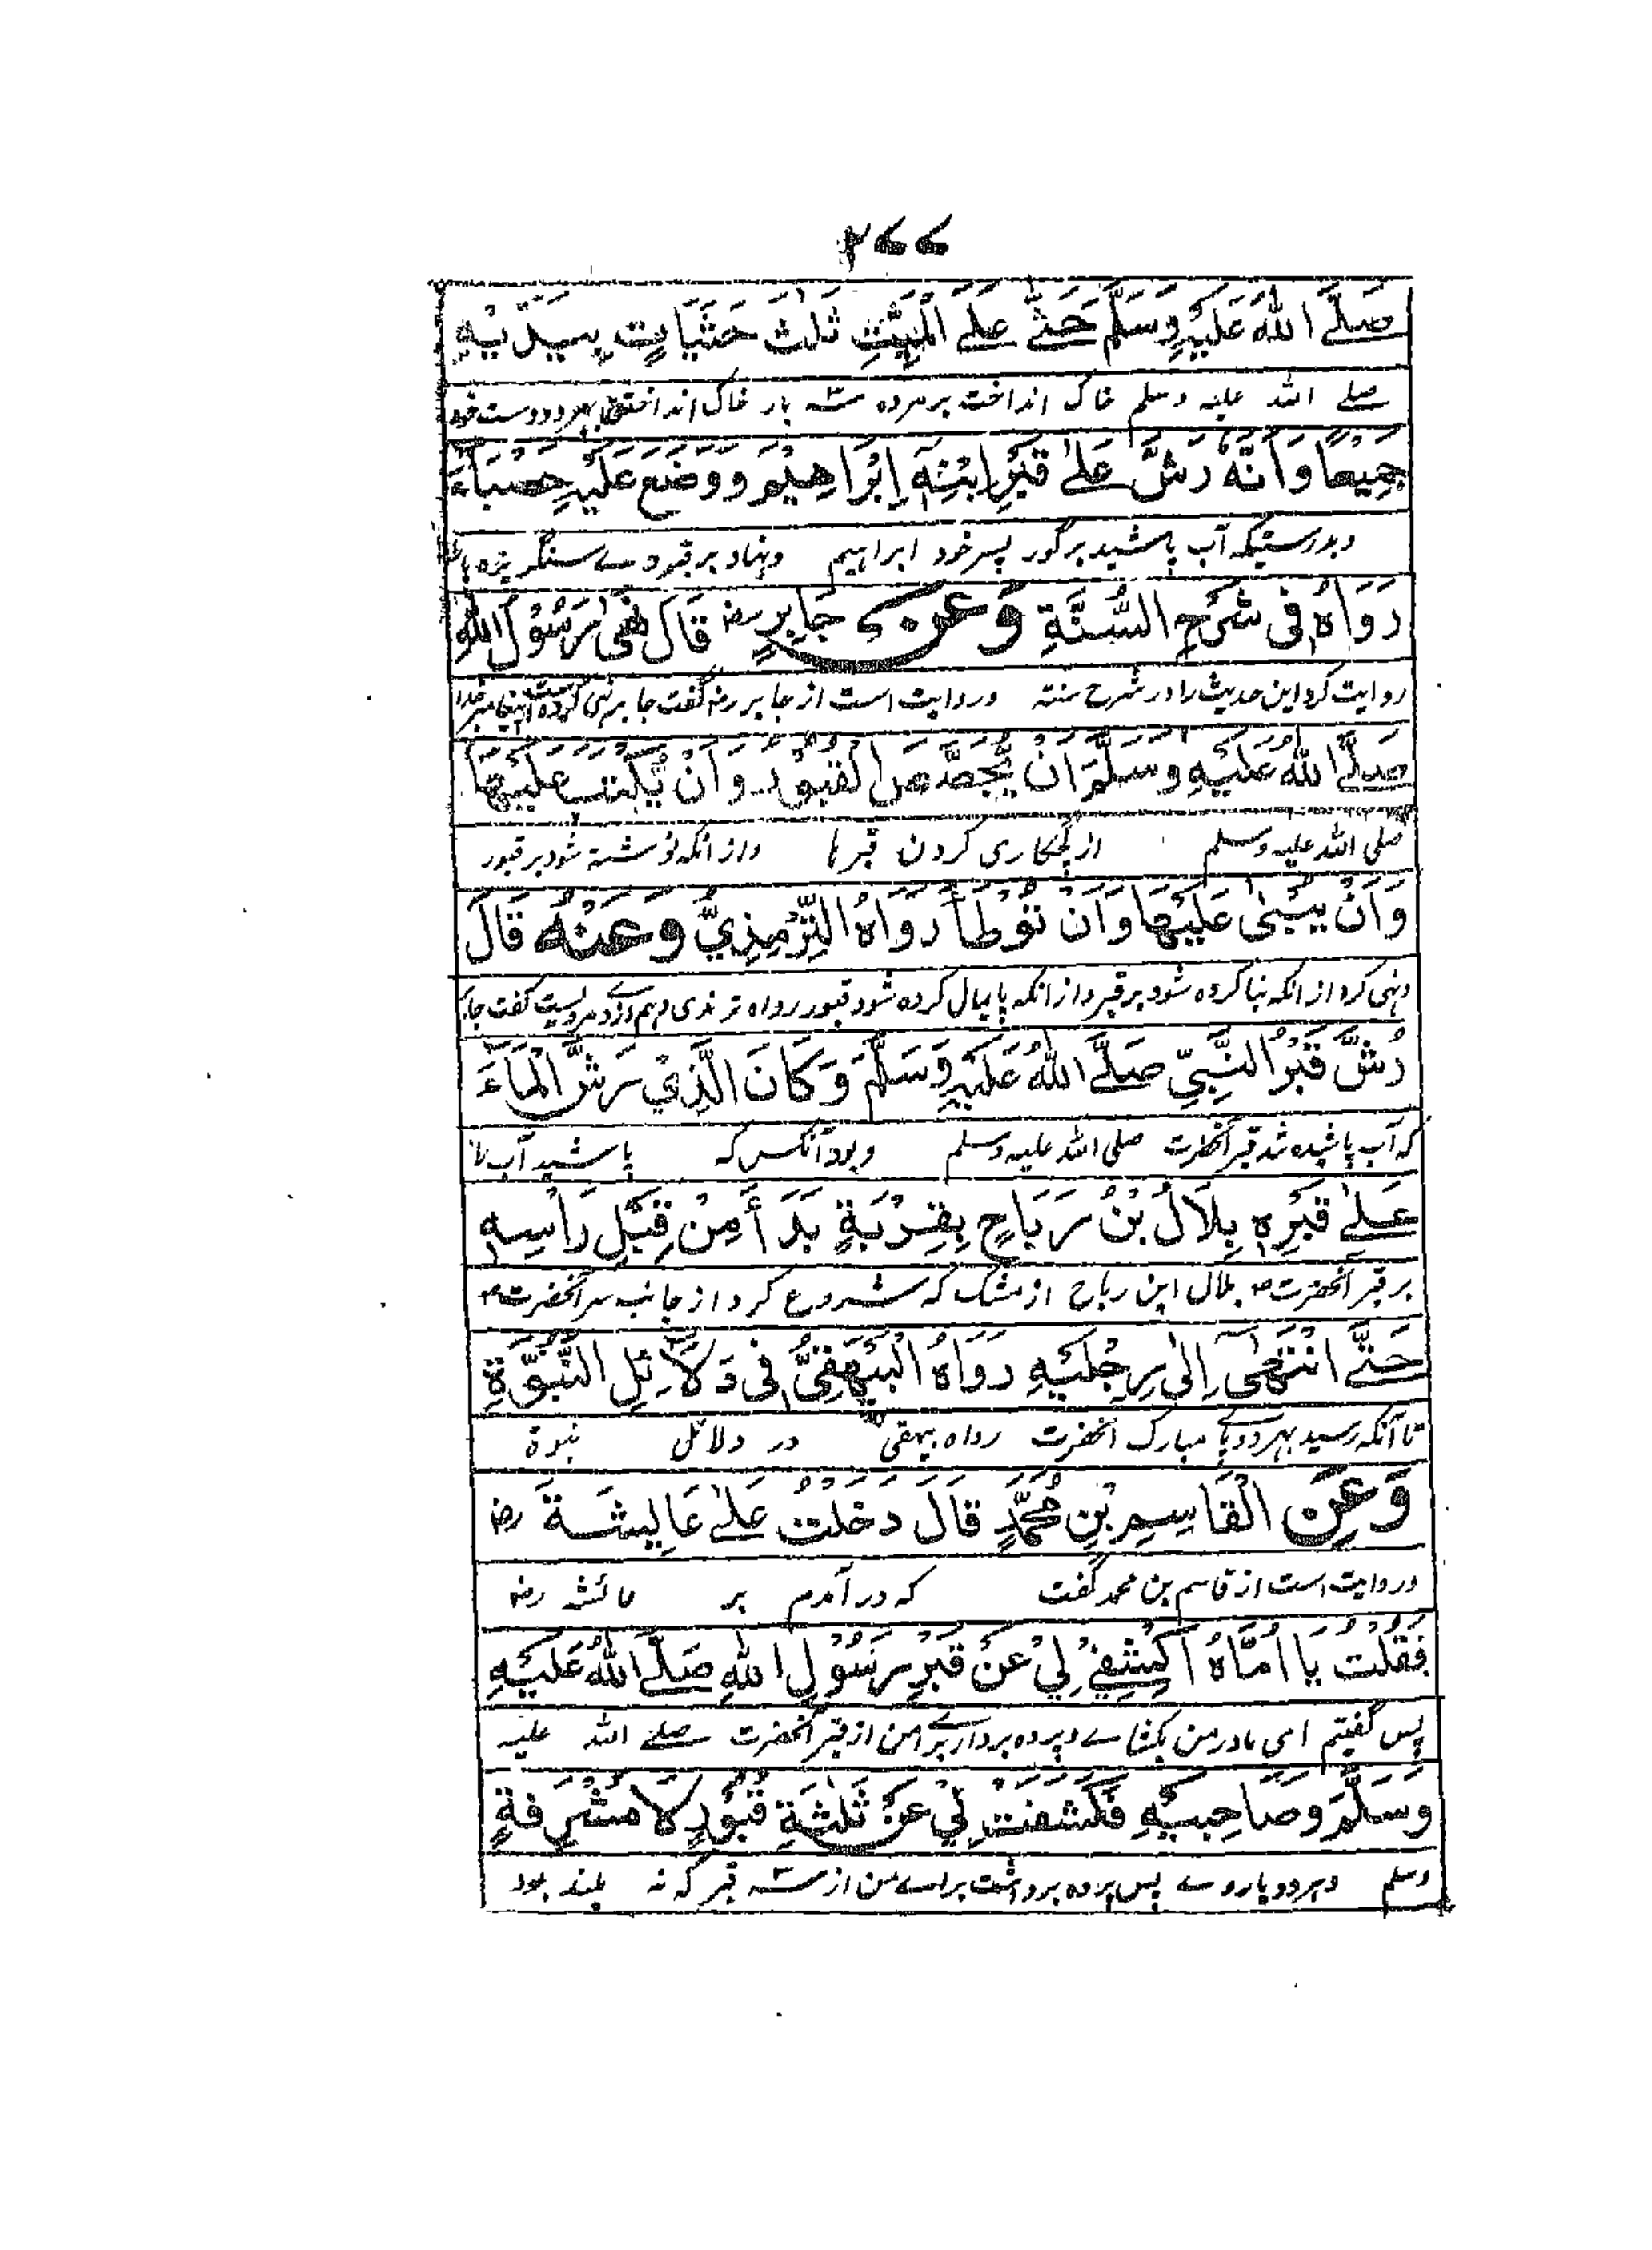 ٢٧٧
صَلَّے اللهُ عَلَيْهِ وَسَلَّمَ حَثٰى عَلَے الْمَيِّتِ ثَلٰثَ حَثَيَاتٍ بِيَدَيْهِ
صلے الله علیه وسلم خاک انداخت بر مرده سه بار خاک انداختنی بهر دو دست خود
جَمِيْعًا وَاَنَّهٗ رَشَّ عَلٰے قَبْرِ ابْنِهٖ اِبْرَاهِيْمَ وَوَضَعَ عَلَيْهِ حَصْبَاءَ
وبدرستیکه آب پاشید بر گور پسر خود ابراهیم ونهاد بر قبر وے سنگریزه
رَوَاهُ فِى شَرْحِ السُّنَّةِ وَعَنْ جَابِرٍ رض قَالَ نَهٰى رَسُوْلُ اللهِ
روایت کرد این حدیث را در شرح سنته وروایت است از جابر رض گفت جابر نهی کرده است پیغامبر خدا
صَلَّے اللهُ عَلَيْهِ وَسَلَّمَ اَنْ يُّجَصَّصَ الْقُبُوْرُ وَاَنْ يُّكْتَبَ عَلَيْهَا
صلی الله علیه وسلم از گچکاری کردن قبرها واز انکه نوشته شود بر قبور
وَاَنْ يُبْنٰى عَلَيْهَا وَاَنْ تُوْطَأَ رَوَاهُ التِّرْمِذِيُّ وَعَنْهُ قَالَ
ونهی کرد از انکه بنا کرده شود بر قبر واز انکه پایمال کرده شود قبور رواه ترمذی وهم از وے مرویست گفت جابر
رُشَّ قَبْرُ النَّبِيِّ صَلَّے اللهُ عَلَيْهِ وَسَلَّمَ وَكَانَ الَّذِيْ رَشَّ الْمَاءَ
که آب پاشیده شد قبر آنحضرت صلی الله علیه وسلم وبود آنکس که پاشید آب را
عَلٰے قَبْرِهٖ بِلَالُ بْنُ رَبَاحٍ بِقِرْبَةٍ بَدَأَ مِنْ قِبَلِ رَاْسِهٖ
بر قبر آنحضرت ص بلال ابن رباح از مشک که شروع کرد از جانب سر آنحضرت ص
حَتّٰے انْتَهٰى اِلٰى رِجْلَيْهِ رَوَاهُ الْبَيْهَقِىُّ فِى دَلَآئِلِ النُّبُوَّةِ
تا آنکه رسید بهر دو پاے مبارک آنحضرت رواه بیهقی در دلائل نبوة
وَعَنِ الْقَاسِمِ بْنِ مُحَمَّدٍ قَالَ دَخَلْتُ عَلٰے عَائِشَةَ رض
وروایت است از قاسم بن محمد گفت که در آمدم بر عائشه رض
فَقُلْتُ يَا اُمَّاهُ اكْشِفِيْ لِيْ عَنْ قَبْرِ رَسُوْلِ اللهِ صَلَّے اللهُ عَلَيْهِ
پس گفتم ای مادر من بکشاے وپرده بردار براے من از قبر آنحضرت صلے الله علیه
وَسَلَّمَ وَصَاحِبَيْهِ فَكَشَفَتْ لِيْ عَنْ ثَلٰثَةِ قُبُوْرٍ لَا مُشْرِفَةٍ
وسلم وهر دو یار وے پس پرده برداشت براے من از سه قبر که نه بلند بود